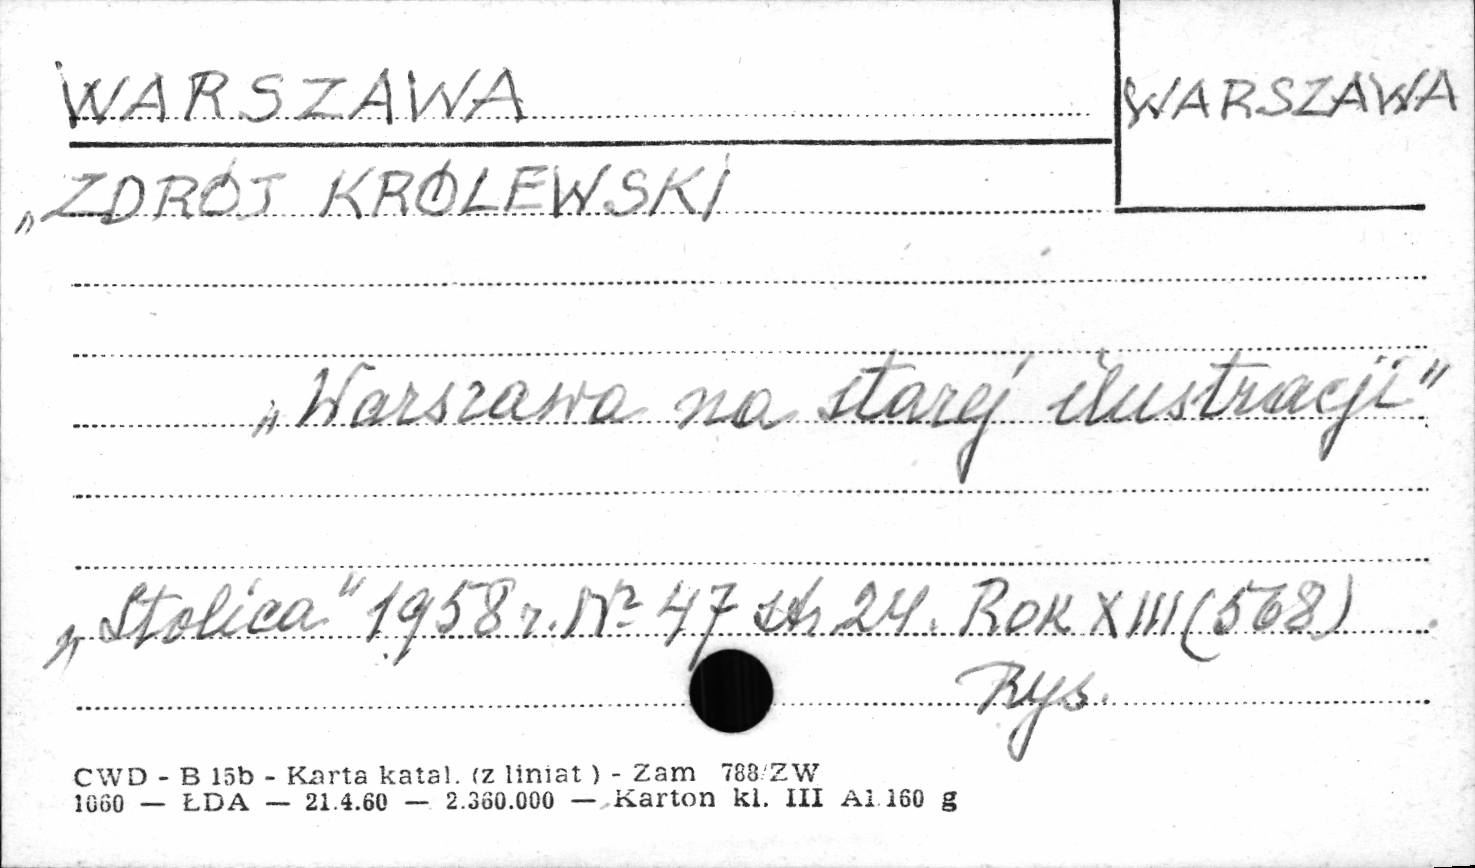 WARSZAWA
WARSZAWA
„ZDRÓJ KRÓLEWSKI
„Warszawa na starej ilustracji"
„Stolica" 1958 r. Nº 47 str 24. Rok XIII (568)
Rys.
CWD - B 15b - Karta katal. (z liniat) - Zam 788/ZW
1060 — ŁDA — 21.4.60 — 2.360.000 — Karton kl. III A1 160 g